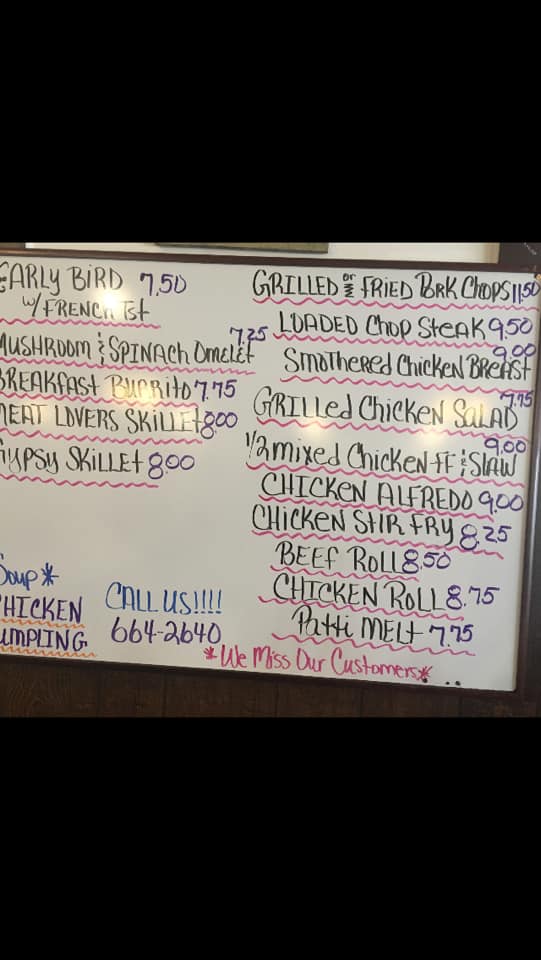 EARLY BIRD 7.50
W/FRENCH Tst
MUSHROOM & SPINACH Omelet 7.25
BREAKFAST BURRITO 7.75
MEAT LOVERS SKILLET 8.00
GYPSY SKILLET 8.00
Soup*
CHICKEN
DUMPLING
CALL US!!!!
664-2640
GRILLED or FRIED PORK CHOPS 11.50
LOADED Chop Steak 9.50
Smothered Chicken BREAST 9.00
GRILLed Chicken SALAD 7.75
1/2 mixed Chicken FF & SLAW 9.00
CHICKEN ALFREDO 9.00
CHICKEN STIR FRY 8.25
BEEF ROLL 8.50
CHICKEN ROLL 8.75
Patti MELT 7.75
*We Miss Our Customers*